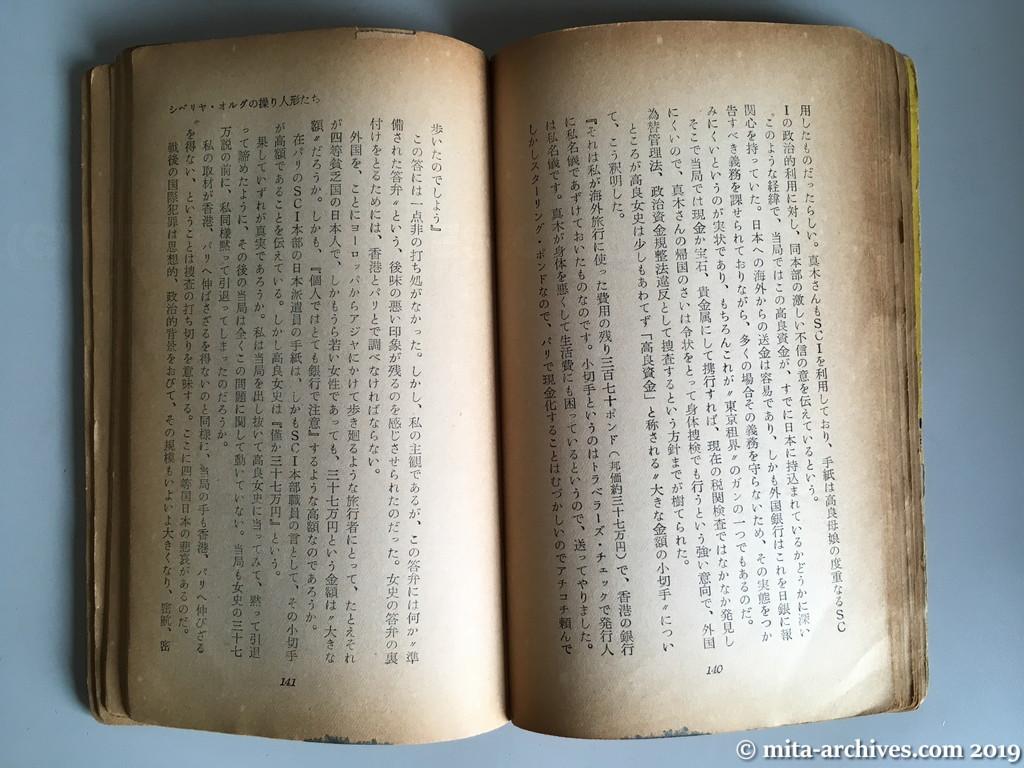 用したものだったらしい。真木さんもＳＣＩを利用しており、手紙は高良母娘の度重なるＳＣ
Ｉの政治的利用に対し、同本部の激しい不信の意を伝えているという。
このような経緯で、当局ではこの高良資金が、すでに日本に持込まれているかどうかに深い
関心を持っていた。日本への海外からの送金は容易であり、しかも外国銀行はこれを日銀に報
告すべき義務を課せられておりながら、多くの場合その義務を守らないため、その実態をつか
みにくいというのが実状であり、もちろんこれが〝東京租界〟のガンの一つでもあるのだ。
そこで当局では現金か宝石、貴金属にして携行すれば、現在の税関検査ではなかなか発見し
にくいので、真木さんの帰国のさいは令状をとって身体捜検でも行うという強い意向で、外国
為替管理法、政治資金規整法違反として捜査するという方針までが樹てられた。
ところが高良女史は少しもあわてず「高良資金」と称される〝大きな金額の小切手〟につい
て、こう釈明した。
『それは私が海外旅行に使った費用の残り三百七十ポンド（邦価約三十七万円）で、香港の銀行
に私名儀であずけておいたものなのです。小切手というのはトラベラーズ・チェックで発行人
は私名儀です。真木が身体を悪くして生活費にも困っているというので、送ってやりました。
しかしスターリング・ポンドなので、パリで現金化することはむづかしいのでアチコチ頼んで
140
シベリヤ・オルダの操り人形たち
歩いたのでしょう』
この答には一点非の打ち処がなかった。しかし、私の主観であるが、この答弁には何か〝準
備された答弁〟という、後味の悪い印象が残るのを感じさせられたのだった。女史の答弁の裏
付けをとるためには、香港とパリとで調べなければならない。
外国を、ことにヨーロッパからアジヤにかけて歩き廻るような旅行者にとって、たとえそれ
が四等貧乏国の日本人で、しかもうら若い女性であっても、三十七万円という金額は〝大きな
額〟だろうか。しかも、『個人ではとても銀行で注意』するような高額なのであろうか。
在パリのＳＣＩ本部の日本派遣員の手紙は、しかもＳＣＩ本部職員の言として、その小切手
が高額であることを伝えている。しかし高良女史は『僅か三十七万円』という。
果していずれが真実であろうか。私は当局を出し抜いて高良女史に当ってみて、黙って引退
って諦めたように、その後の当局は全くこの問題に関して動いていない。当局も女史の三十七
万説の前に、私同様黙って引退ってしまったのだろうか。
私の取材が香港、パリへ伸ばさざるを得ないのと同様に、当局の手も香港、パリへ伸びざる
を得ない、ということは捜査の打ち切りを意味する。ここに四等国日本の悲哀があるのだ。
戦後の国際犯罪は思想的、政治的背景をおびて、その規模もいよいよ大きくなり、密航、密
141
© mita-archives.com 2019